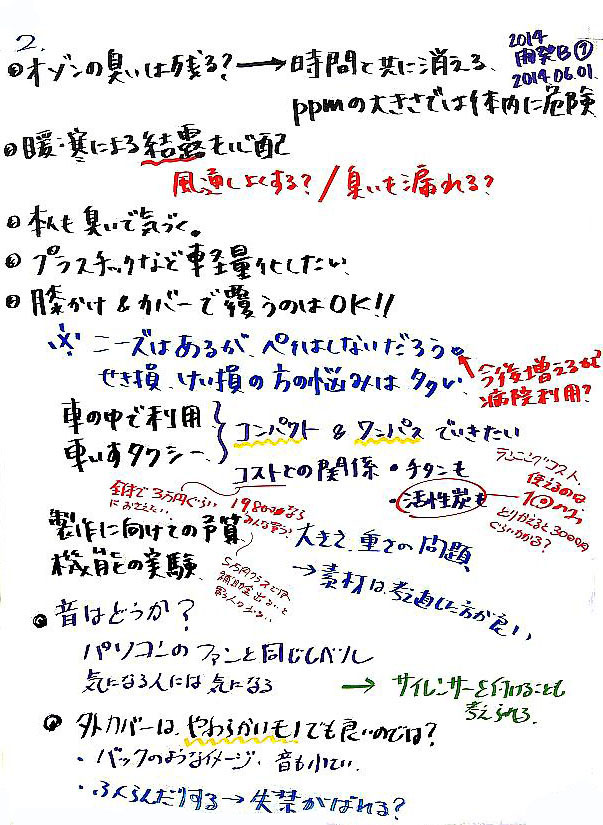 2.
2014
開発B①
2014.06.01.
オゾンの臭いは残る?→時間と共に消える、
ppmの大きさでは体内に危険
暖・寒による結露も心配
風通しよくする?/臭いも漏れる?
本人も臭いで気づく。
プラスチックなど軽量化したい、
膝かけ&カバーで覆うのはOK!!
※ニーズはあるが、ペイはしないだろう。
せき損、けい損の方の悩みは多い、
今後増える
病院利用?
車の中で利用
車いすタクシー、
コンパクト&ワンパスでいきたい
コストとの関係・チタンも
・活性炭も
ランニングコスト、
使えるのは
とりかえると3000円
ぐらいかかる?
全体で3万円ぐらい
におさえたい、
19800なら
みんな買う?
製作に向けての予算
機能の実験、
5万円クラスでは、
補助金出ないと
買う人少ない、
大きさ、重さの問題、
→素材は考え直した方が良い、
音はどうか?
パソコンのファンと同じレベル
気になる人には気になる
→サイレンサーを付けることも
考えられる、
外カバーは、やわらかいモノでも良いのでは?
・バックのようなイメージ、音も小さい、
・ふくらんだりする→失禁がばれる?